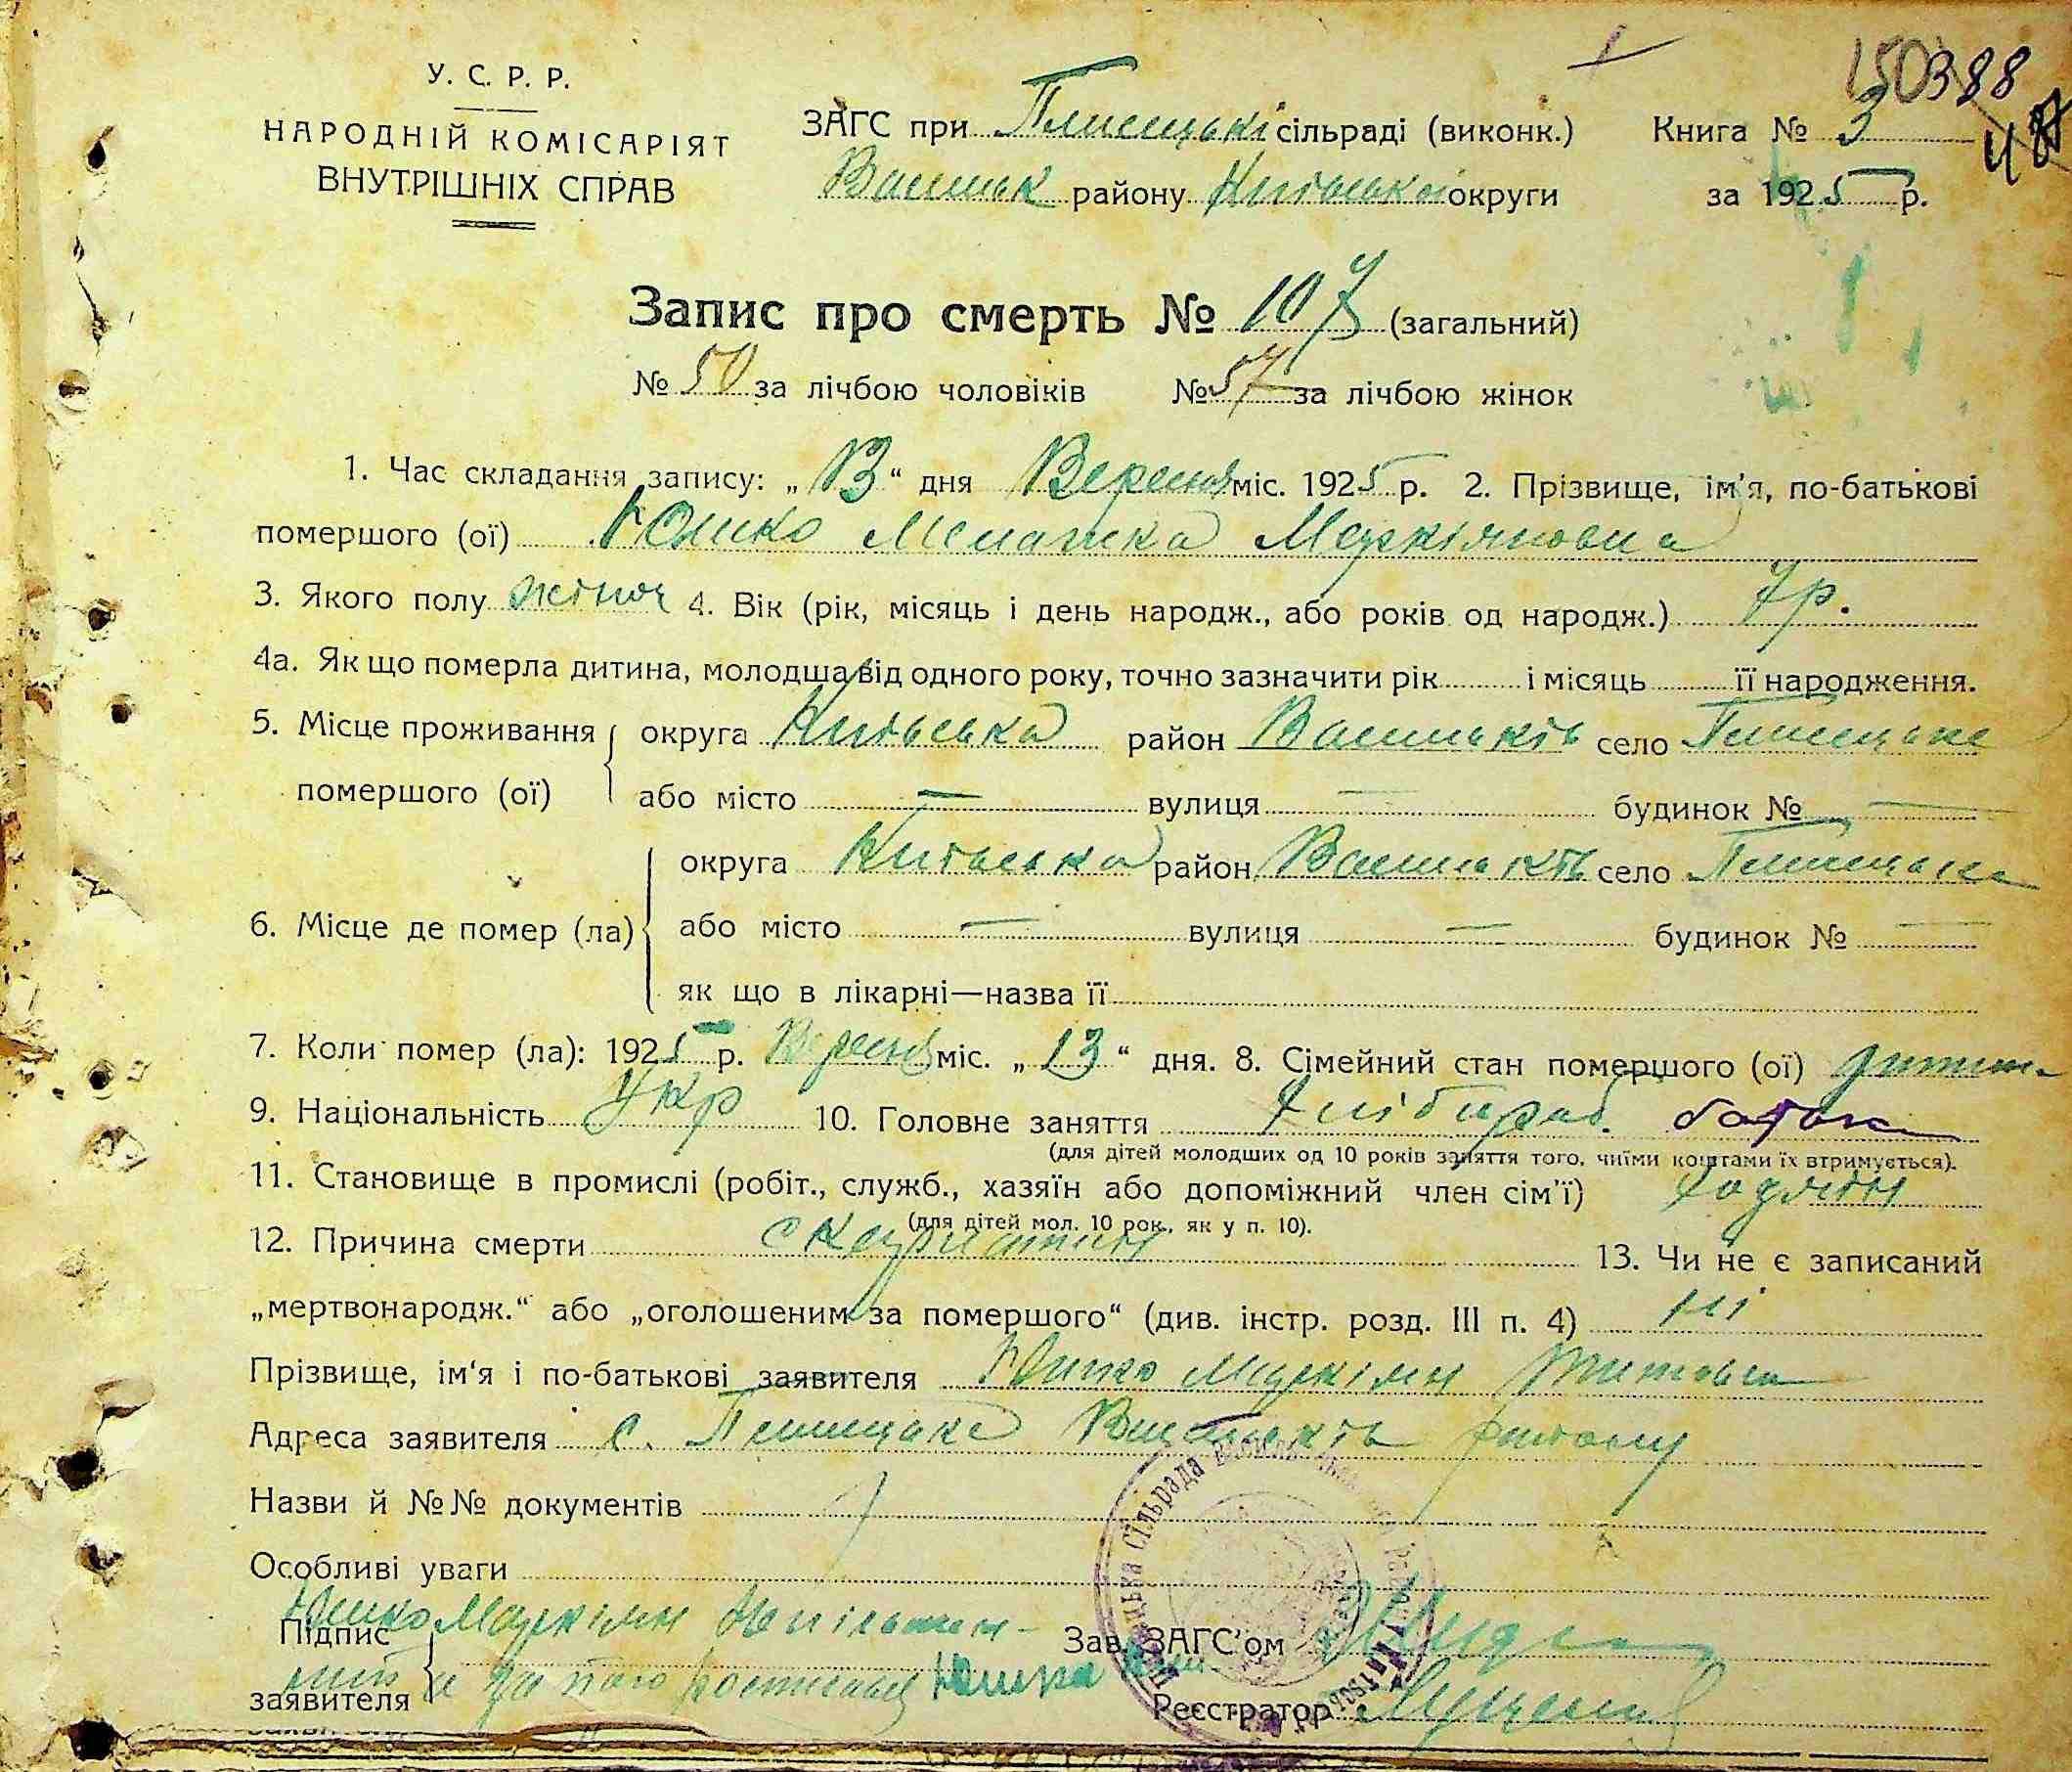 150388
48
У. С. Р. Р.
НАРОДНІЙ КОМІСАРІЯТ
ВНУТРІШНІХ СПРАВ
ЗАГС при Плисецькі сільраді (виконк.) Книга № 3
Васильк району Київської округи за 1925 р.
Запис про смерть № 107 (загальний)
№ 50 за лічбою чоловіків № 57 за лічбою жінок
1. Час складання запису: „ 13 “ дня Вересня міс. 1925 р. 2. Прізвище, ім'я, по-батькові
помершого (ої) Юшко Мелашка Маркіяновна
3. Якого полу жіноч 4. Вік (рік, місяць і день народж., або років од народж.) 7 р.
4а. Як що померла дитина, молодша від одного року, точно зазначити рік і місяць її народження.
5. Місце проживання помершого (ої) округа Київська район Васильків село Плисецьке
або місто — вулиця — будинок № —
6. Місце де помер (ла) округа Київська район Васильків село Плисецьке
або місто — вулиця — будинок № —
як що в лікарні—назва її
7. Коли помер (ла): 1925 р. Вересня міс. „ 13 “ дня. 8. Сімейний стан помершого (ої) дитина
9. Національність Укр 10. Головне заняття Хлібороб. батько
(для дітей молодших од 10 років заняття того, чиїми коштами їх втримується).
11. Становище в промислі (робіт., служб., хазяїн або допоміжний член сім'ї) Хазяїн
(для дітей мол. 10 рок., як у п. 10).
12. Причина смерти скарлатин 13. Чи не є записаний
„мертвонародж.“ або „оголошеним за помершого“ (див. інстр. розд. III п. 4) ні
Прізвище, ім'я і по-батькові заявителя Юшко Маркіян Титович
Адреса заявителя с. Плисецьке Васильків району
Назви й №№ документів
Особливі уваги
Юшко Маркіян
Підпис заявителя
а за його Юшка
Зав. ЗАГС'ом
Реєстратор
сільрада